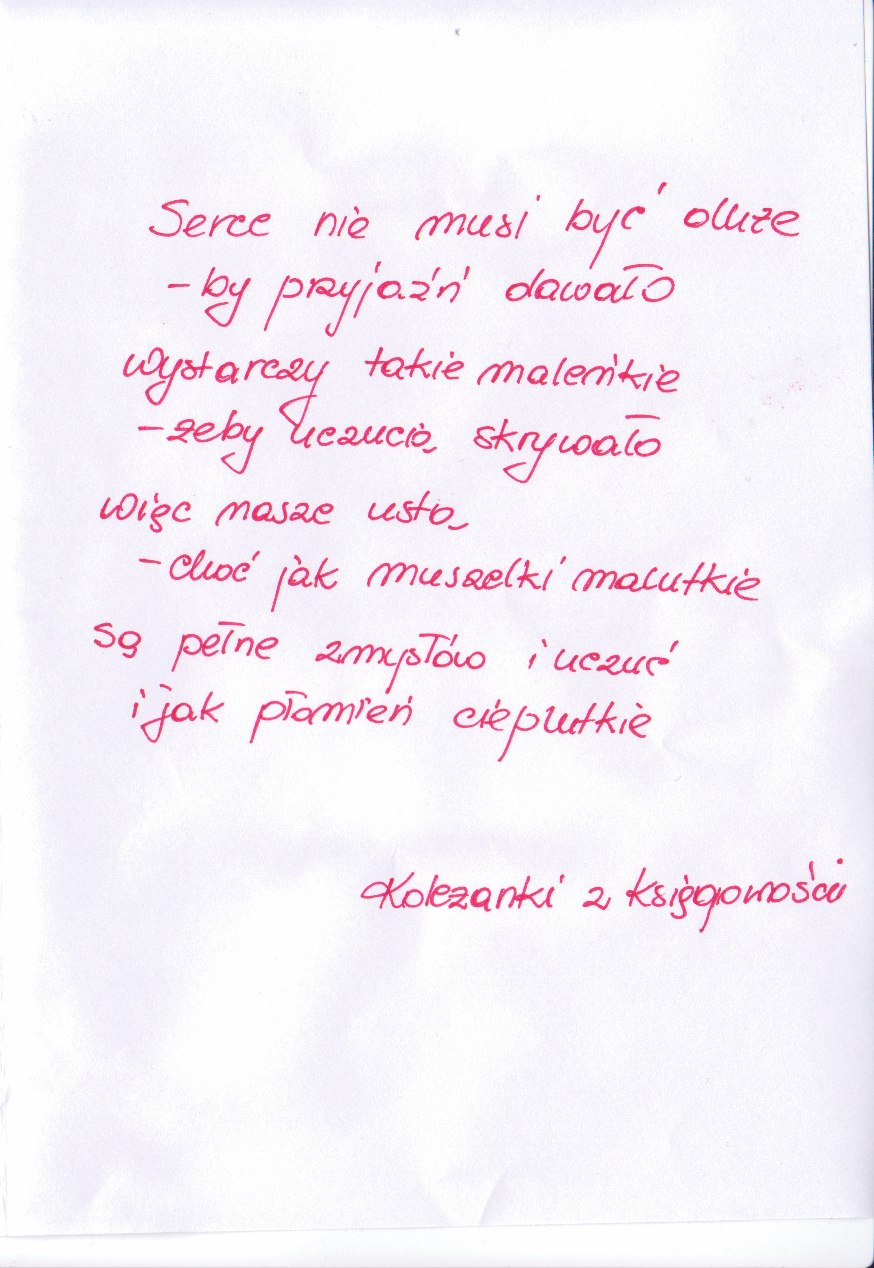 Serce nie musi być duże
- by przyjaźń dawało
wystarczy takie maleńkie
- żeby uczucia skrywało
więc nasze usta
- choć jak muszelki malutkie
są pełne zmysłów i uczuć
i jak płomień cieplutkie
Koleżanki z księgowości